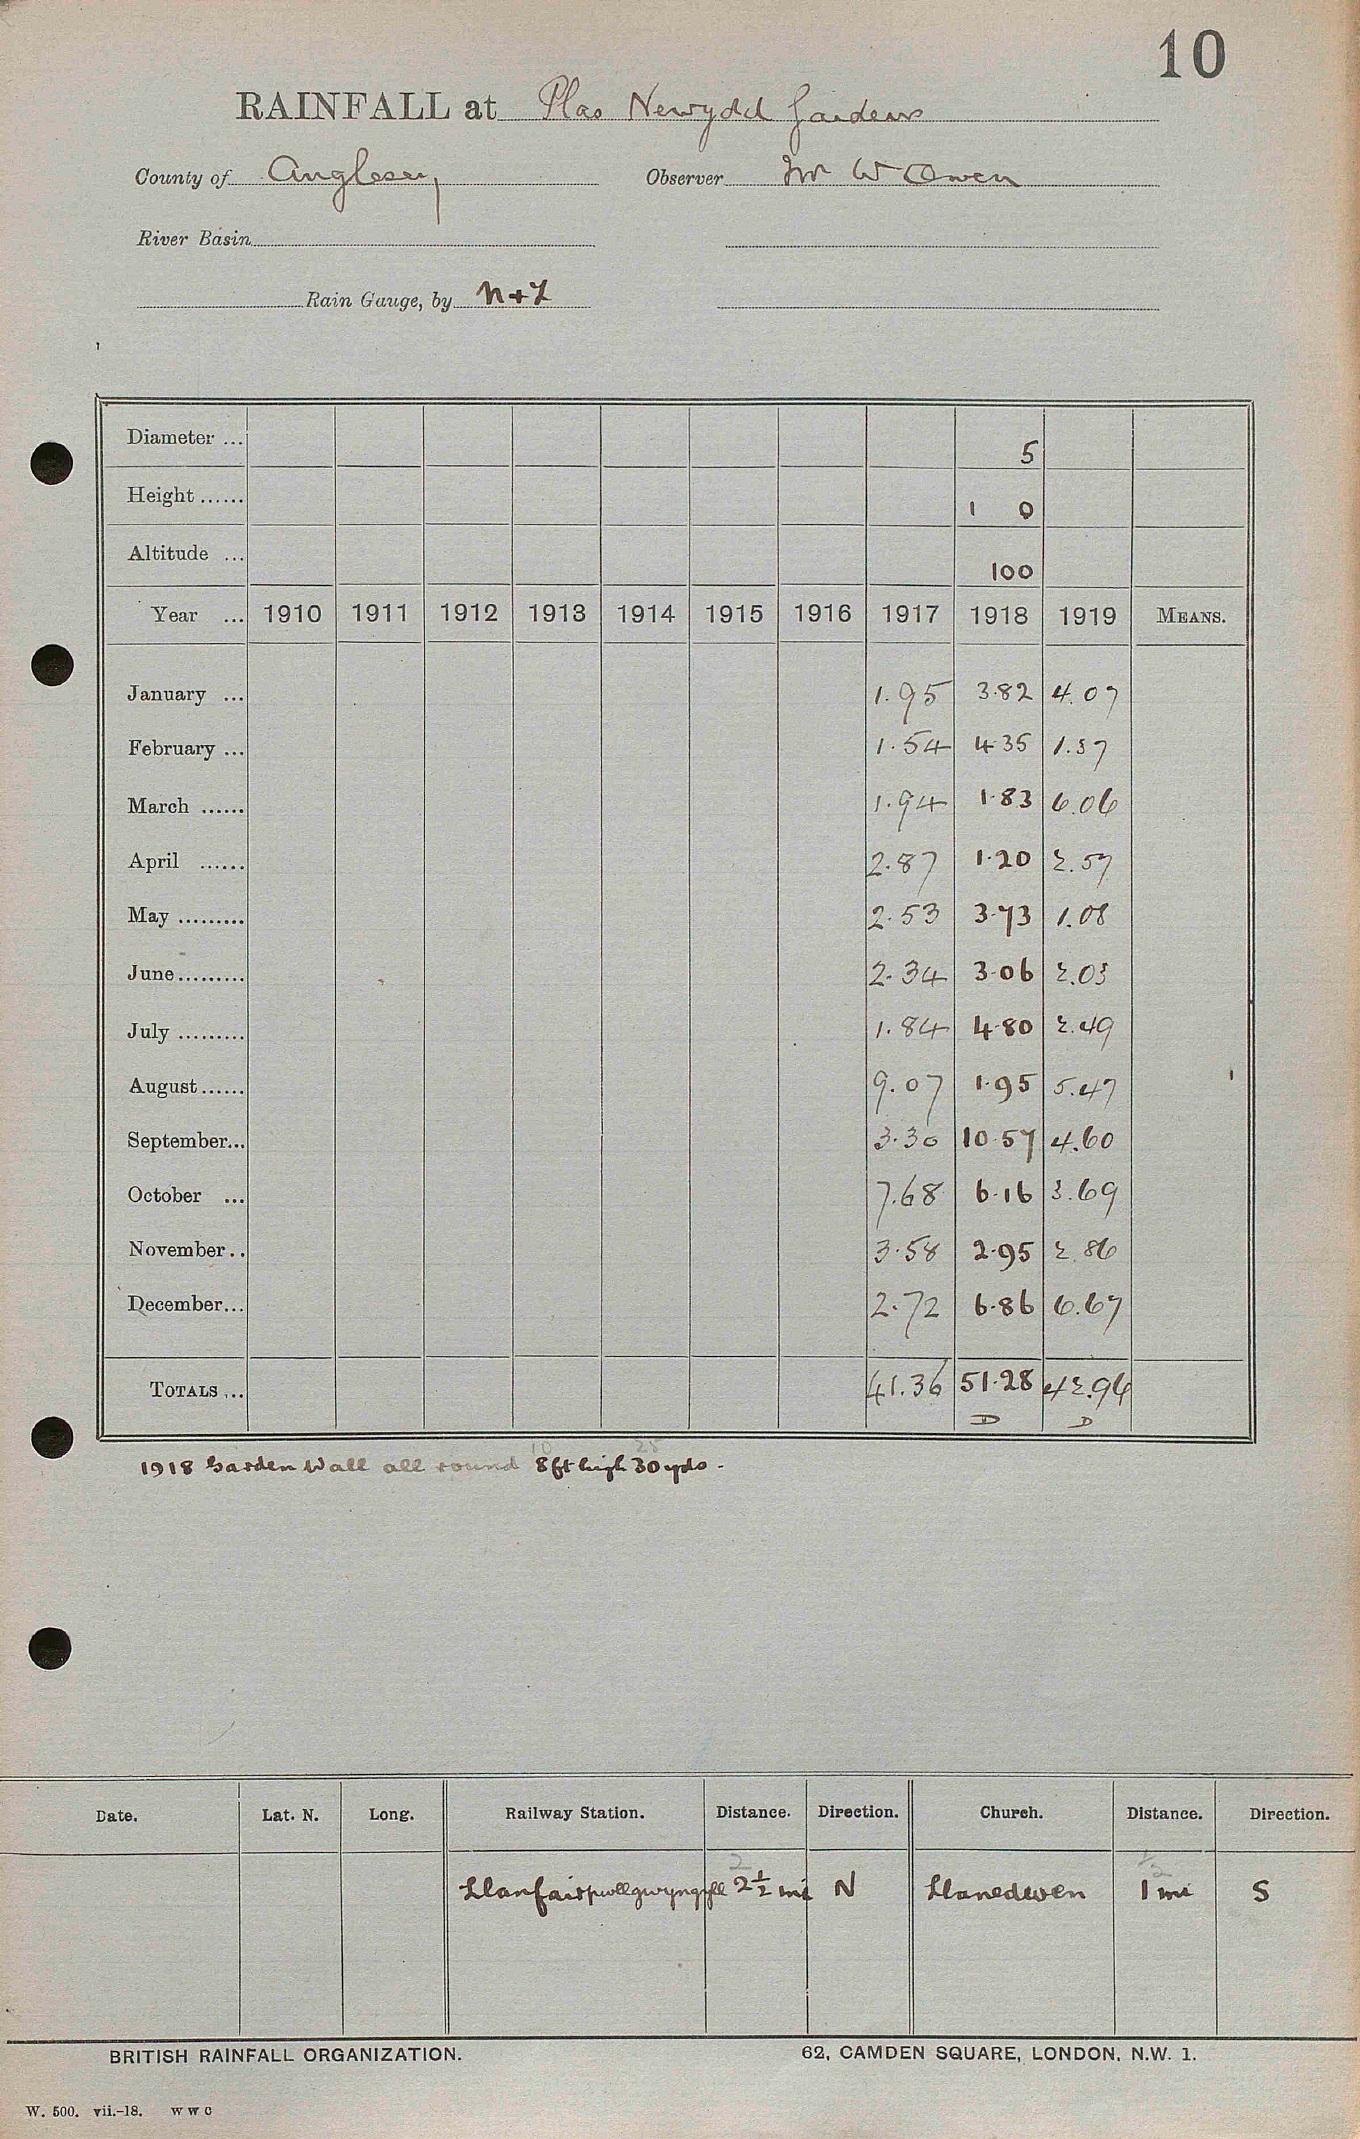 10
RAINFALL at Plas Newydd Gardens
County of Anglesey Observer Mr W Owen
River Basin
Rain Gauge, by N+Z
Diameter ... 5
Height ...... 1 0
Altitude ... 100
Year ... 1910 1911 1912 1913 1914 1915 1916 1917 1918 1919 MEANS.
January ... 1.95 3.82 4.07
February ... 1.54 4.35 1.37
March ...... 1.94 1.83 6.06
April ...... 2.87 1.20 2.57
May ......... 2.53 3.73 1.08
June ......... 2.34 3.06 2.03
July ......... 1.84 4.80 2.49
August ...... 9.07 1.95 5.47
September... 3.30 10.57 4.60
October ... 7.68 6.16 3.69
November .. 3.58 2.95 2.86
December... 2.72 6.86 6.67
TOTALS ... 41.36 51.28 42.96
D D
10 25
1918 Garden Wall all round 8ft high 30 yds.
Date. Lat. N. Long. Railway Station. Distance. Direction. Church. Distance. Direction.
2 1/2
Llanfairpwllgwyngyll 2½ mi N Llanedwen 1 mi S
BRITISH RAINFALL ORGANIZATION. 62, CAMDEN SQUARE, LONDON, N.W. 1.
W. 500. vii.-18. W W C